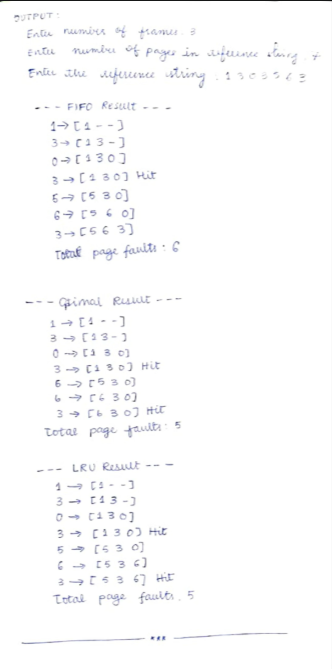 OUTPUT:
Enter number of frames: 3
Enter number of pages in reference string: 7
Enter the reference string: 1 3 0 3 5 6 3
--- FIFO Result ---
1→ [1 - -]
3→ [1 3 -]
0→ [1 3 0]
3 → [1 3 0] Hit
5→ [5 3 0]
6→ [5 6 0]
3→ [5 6 3]
Total page faults: 6
--- Optimal Result ---
1 → [1 - -]
3 → [1 3 -]
0 → [1 3 0]
3 → [1 3 0] Hit
5 → [5 3 0]
6 → [6 3 0]
3 → [6 3 0] Hit
Total page faults: 5
--- LRU Result ---
1 → [1 - -]
3 → [1 3 -]
0 → [1 3 0]
3 → [1 3 0] Hit
5 → [5 3 0]
6 → [5 3 6]
3 → [5 3 6] Hit
Total page faults: 5
***